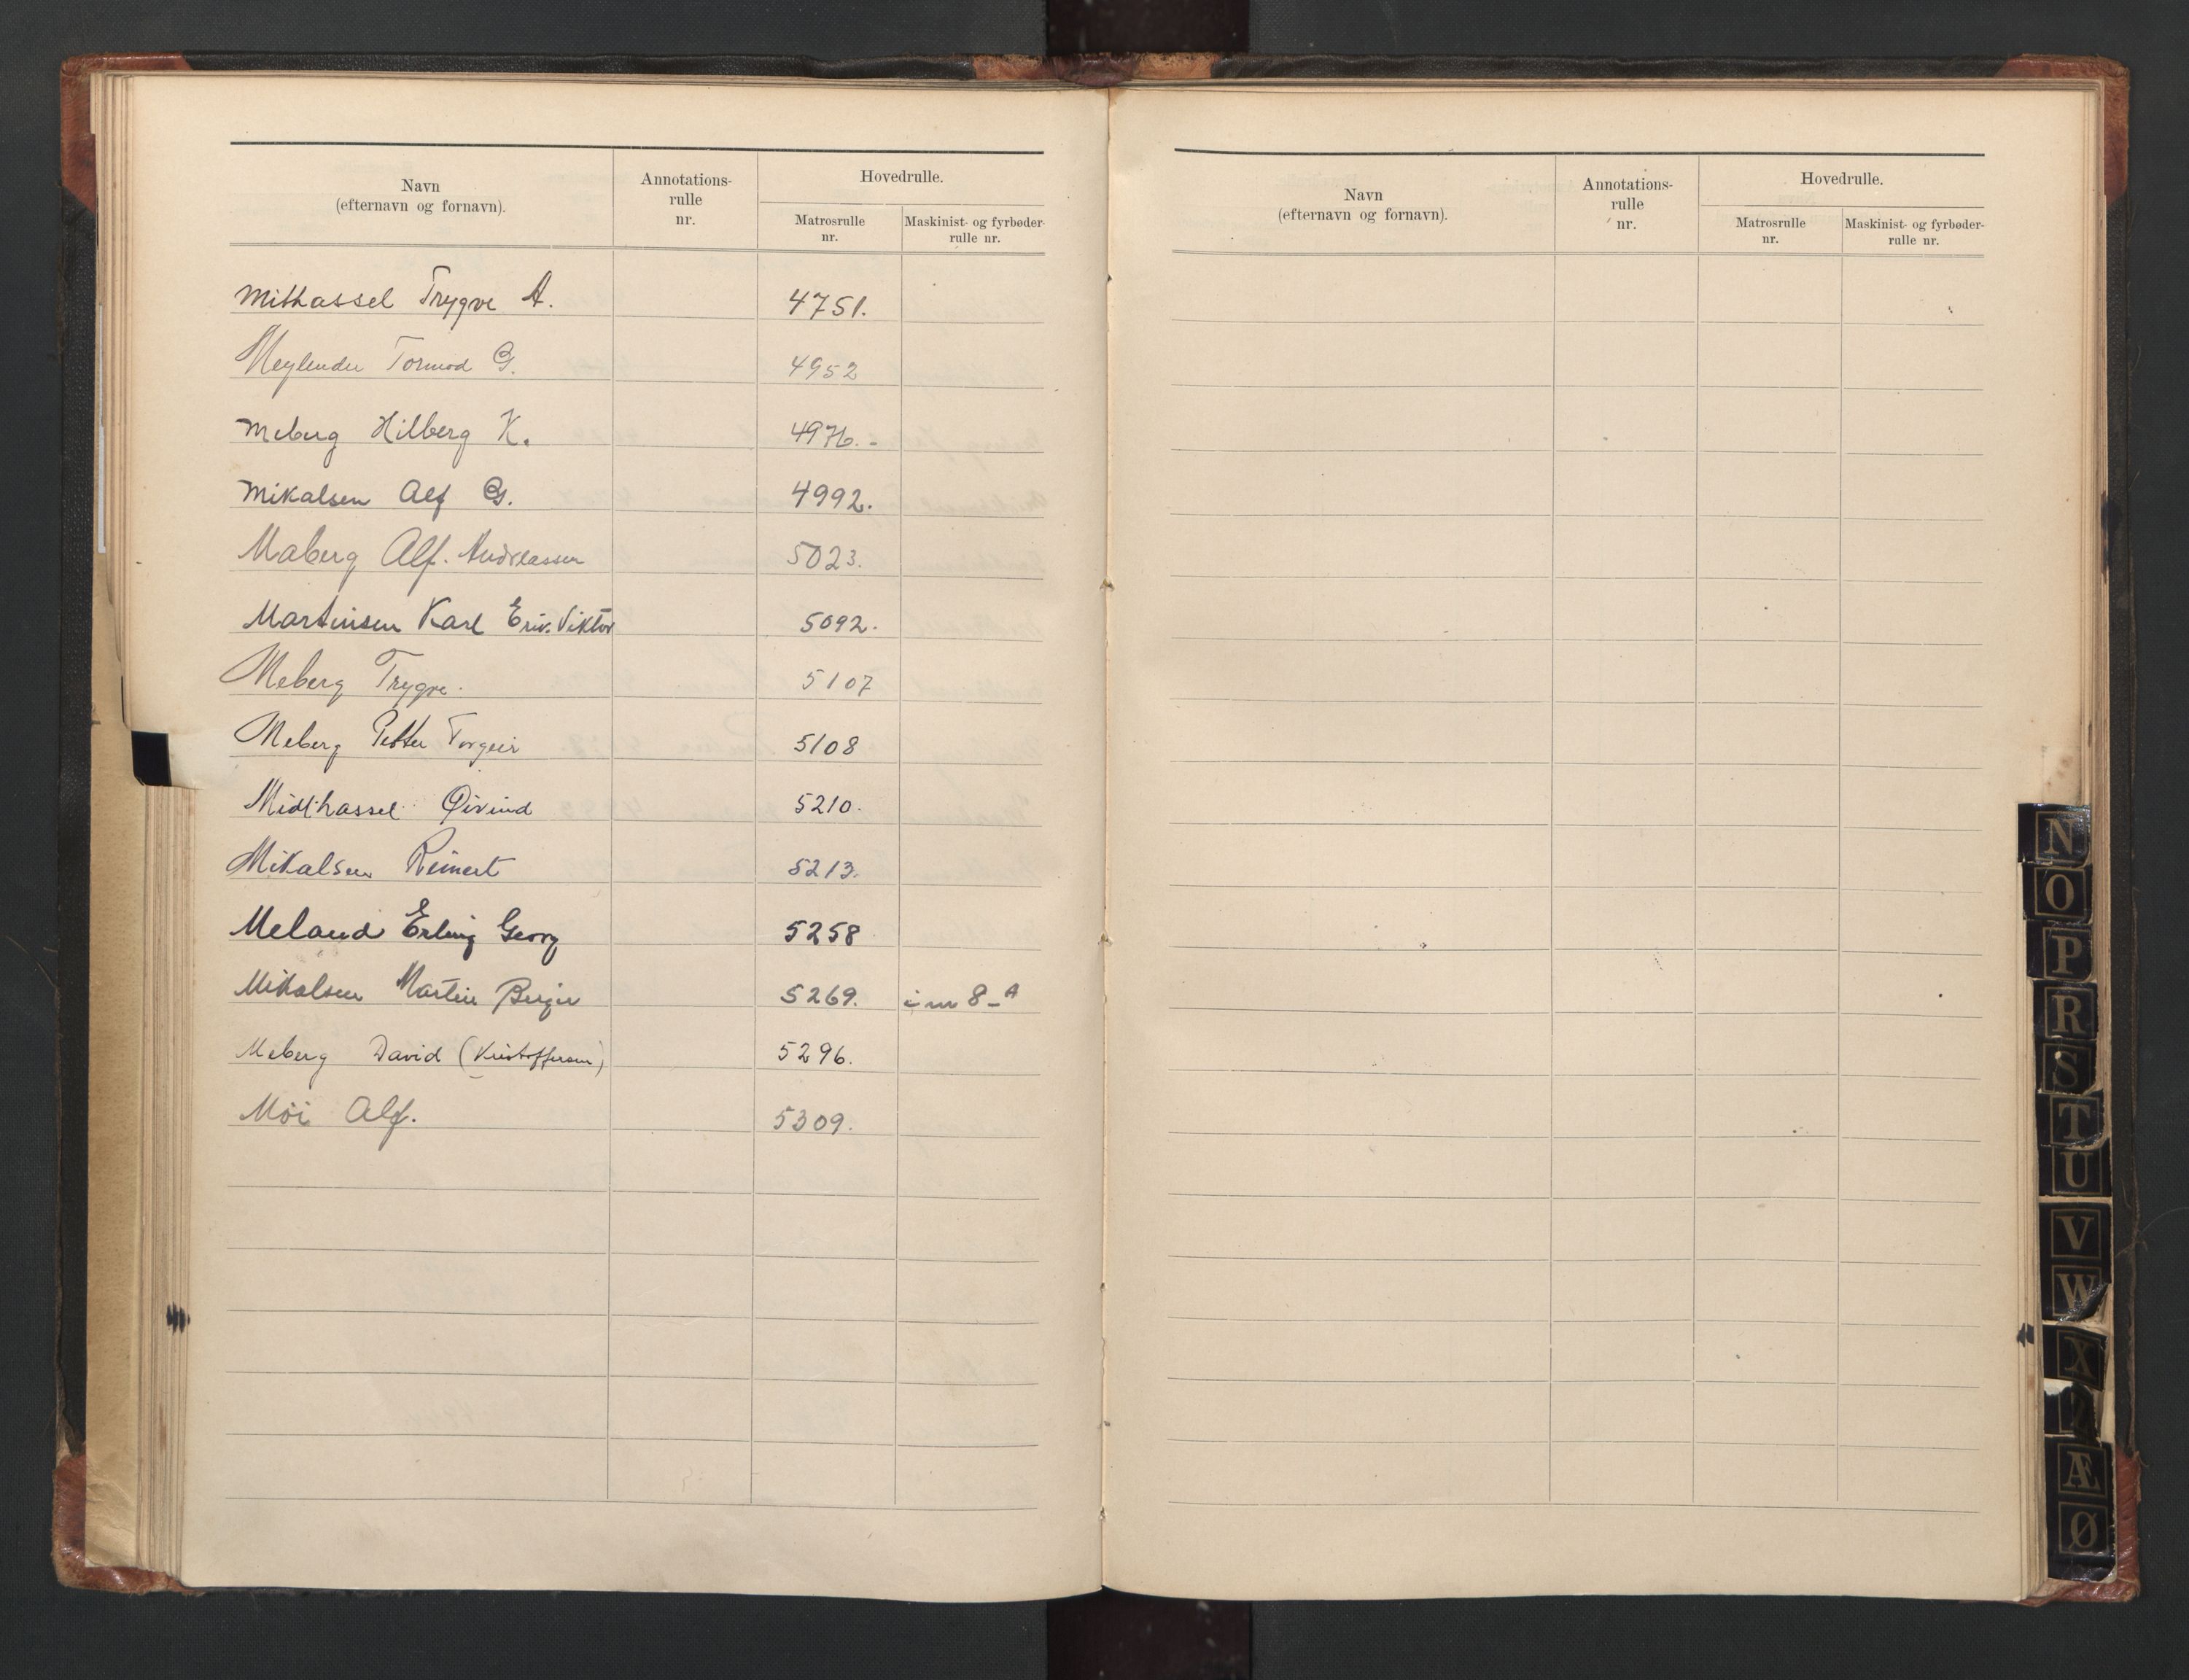 Navn
(efternavn og fornavn).
Annotations-
rulle
nr.
Hovedrulle.
Matrosrulle
nr.
Maskinist- og fyrbøder-
rulle nr.
Mithassel Trygve A. 4751.
Tormod G. 4952
Meberg Hilberg K. 4976.-
Mikalsen Alf G. 4992.
Maberg Alf. Andreassen 5023.
Martinsen Karl Erik. Viktor 5092.
Meberg Trygve. 5107
Meberg Petter Torgeir 5108
Midthassel Øivind 5210.
Mikalsen Reinert 5213.
Meland Erling Georg 5258
Mikalsen Martin Birger 5269. 8-A
Meberg David (Kristoffersen) 5296.
Möi Alf. 5309.
Navn
(efternavn og fornavn).
Annotations-
rulle
nr.
Hovedrulle.
Matrosrulle
nr.
Maskinist- og fyrbøder-
rulle nr.
N
O
P
R
S
T
U
V
W
X
Æ
Ø